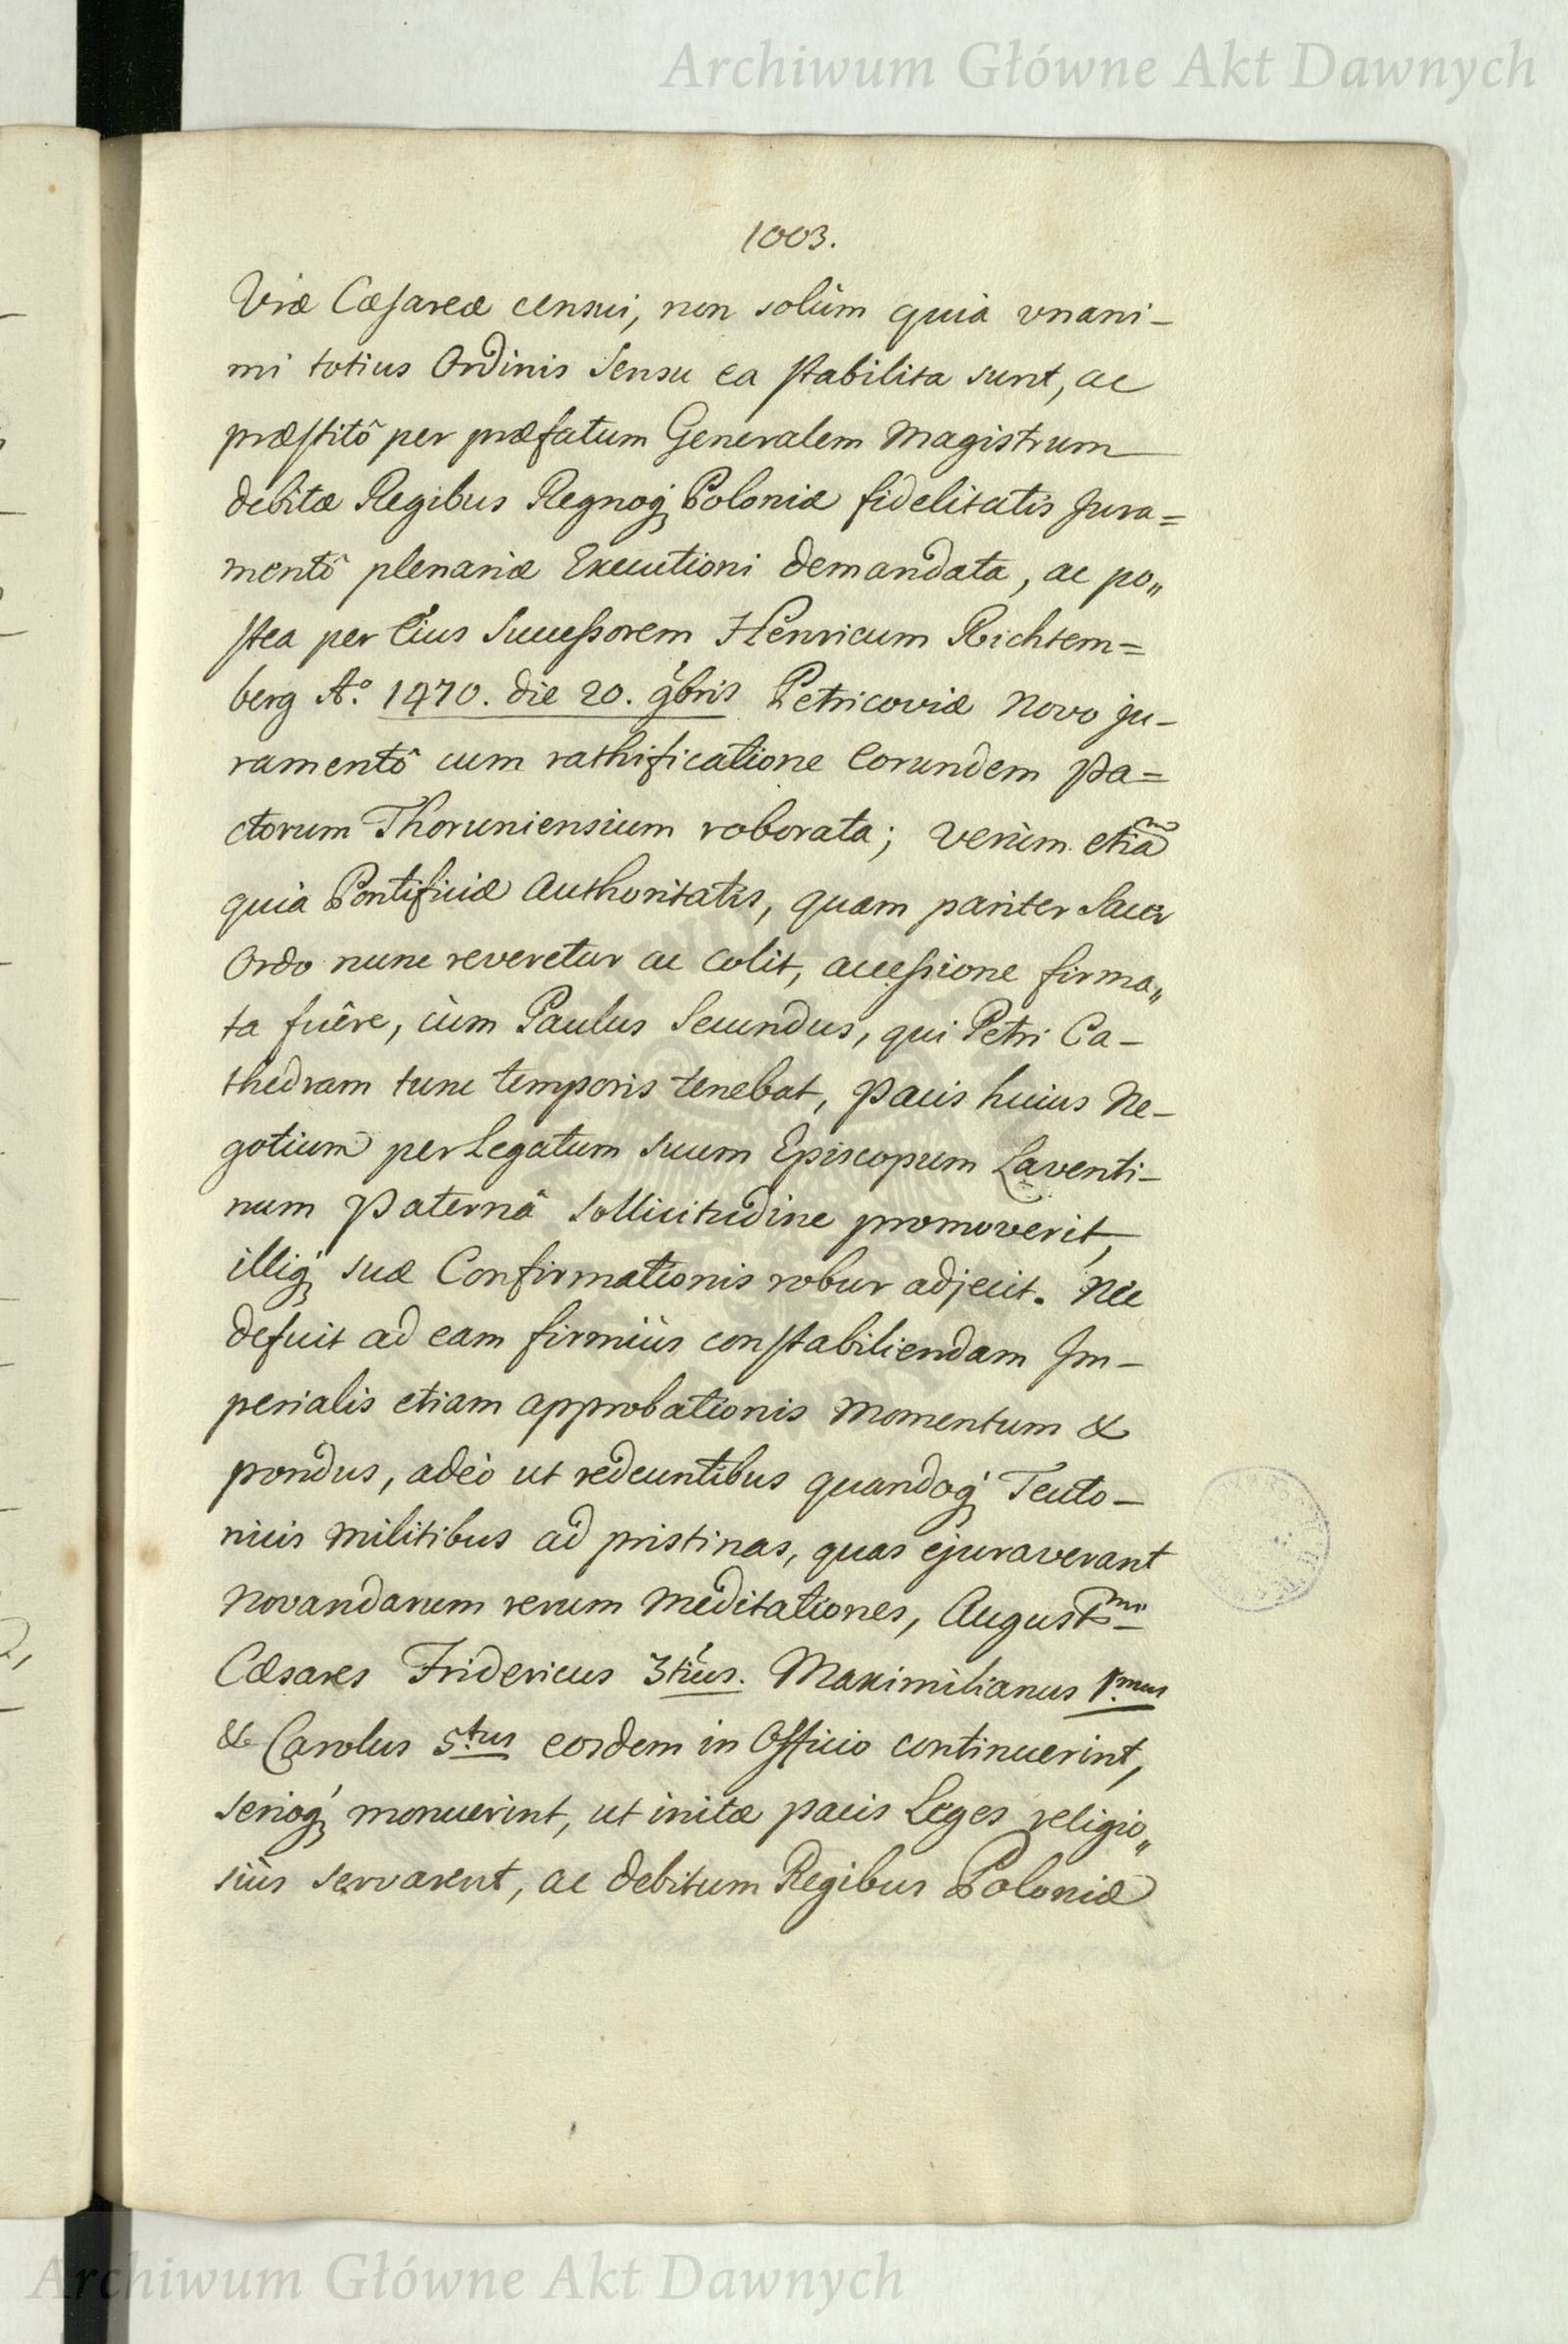 Archiwum Główne Akt Dawnych
1003.
Vræ Cæsareæ censui, non solùm quià vnani-
mi totius Ordinis Sensu ea stabilita sunt, ac
præstitô per præfatum Generalem Magistrum
debitæ Regibus Regnoq; Poloniæ fidelitatis Jura=
mentô plenariæ Executioni demandata, ac po„
stea per Eius Successorem Henricum Richtem=
berg A.º 1470. die 20. 9bris Petricoviæ novo ju-
ramentô cum rathificatione Eorundem Pa=
ctorum Thoruniensium roborata; verùm etiã
quià Pontificiæ Authoritatis, quam pariter Sacer
Ordo nunc reveretur ac colit, accessione firma„
ta fuêre, cùm Paulus Secundus, qui Petri Ca-
thedram tunc temporis tenebat, Pacis huius Ne-
gotium per Legatum suum Episcopum Laventi-
num Paternâ sollicitudine promoverit,
illiq; suæ Confirmationis robur adjecit. Nec
defuit ad eam firmiùs constabiliendam Im-
perialis etiam approbationis momentum &
pondus, adeò ut redeuntibus quandoq; Teuto-
nicis Militibus ad pristinas, quas ejuraverant
novandarum rerum meditationes, Augustmi
Cæsares Fridericus 3tius. Maximilianus 1.mus
& Carolus 5.tus eosdem in Officio continuerint,
serioq; monuerint, ut initæ pacis Leges religio„
siùs servarent, ac debitum Regibus Poloniæ
Archiwum Główne Akt Dawnych